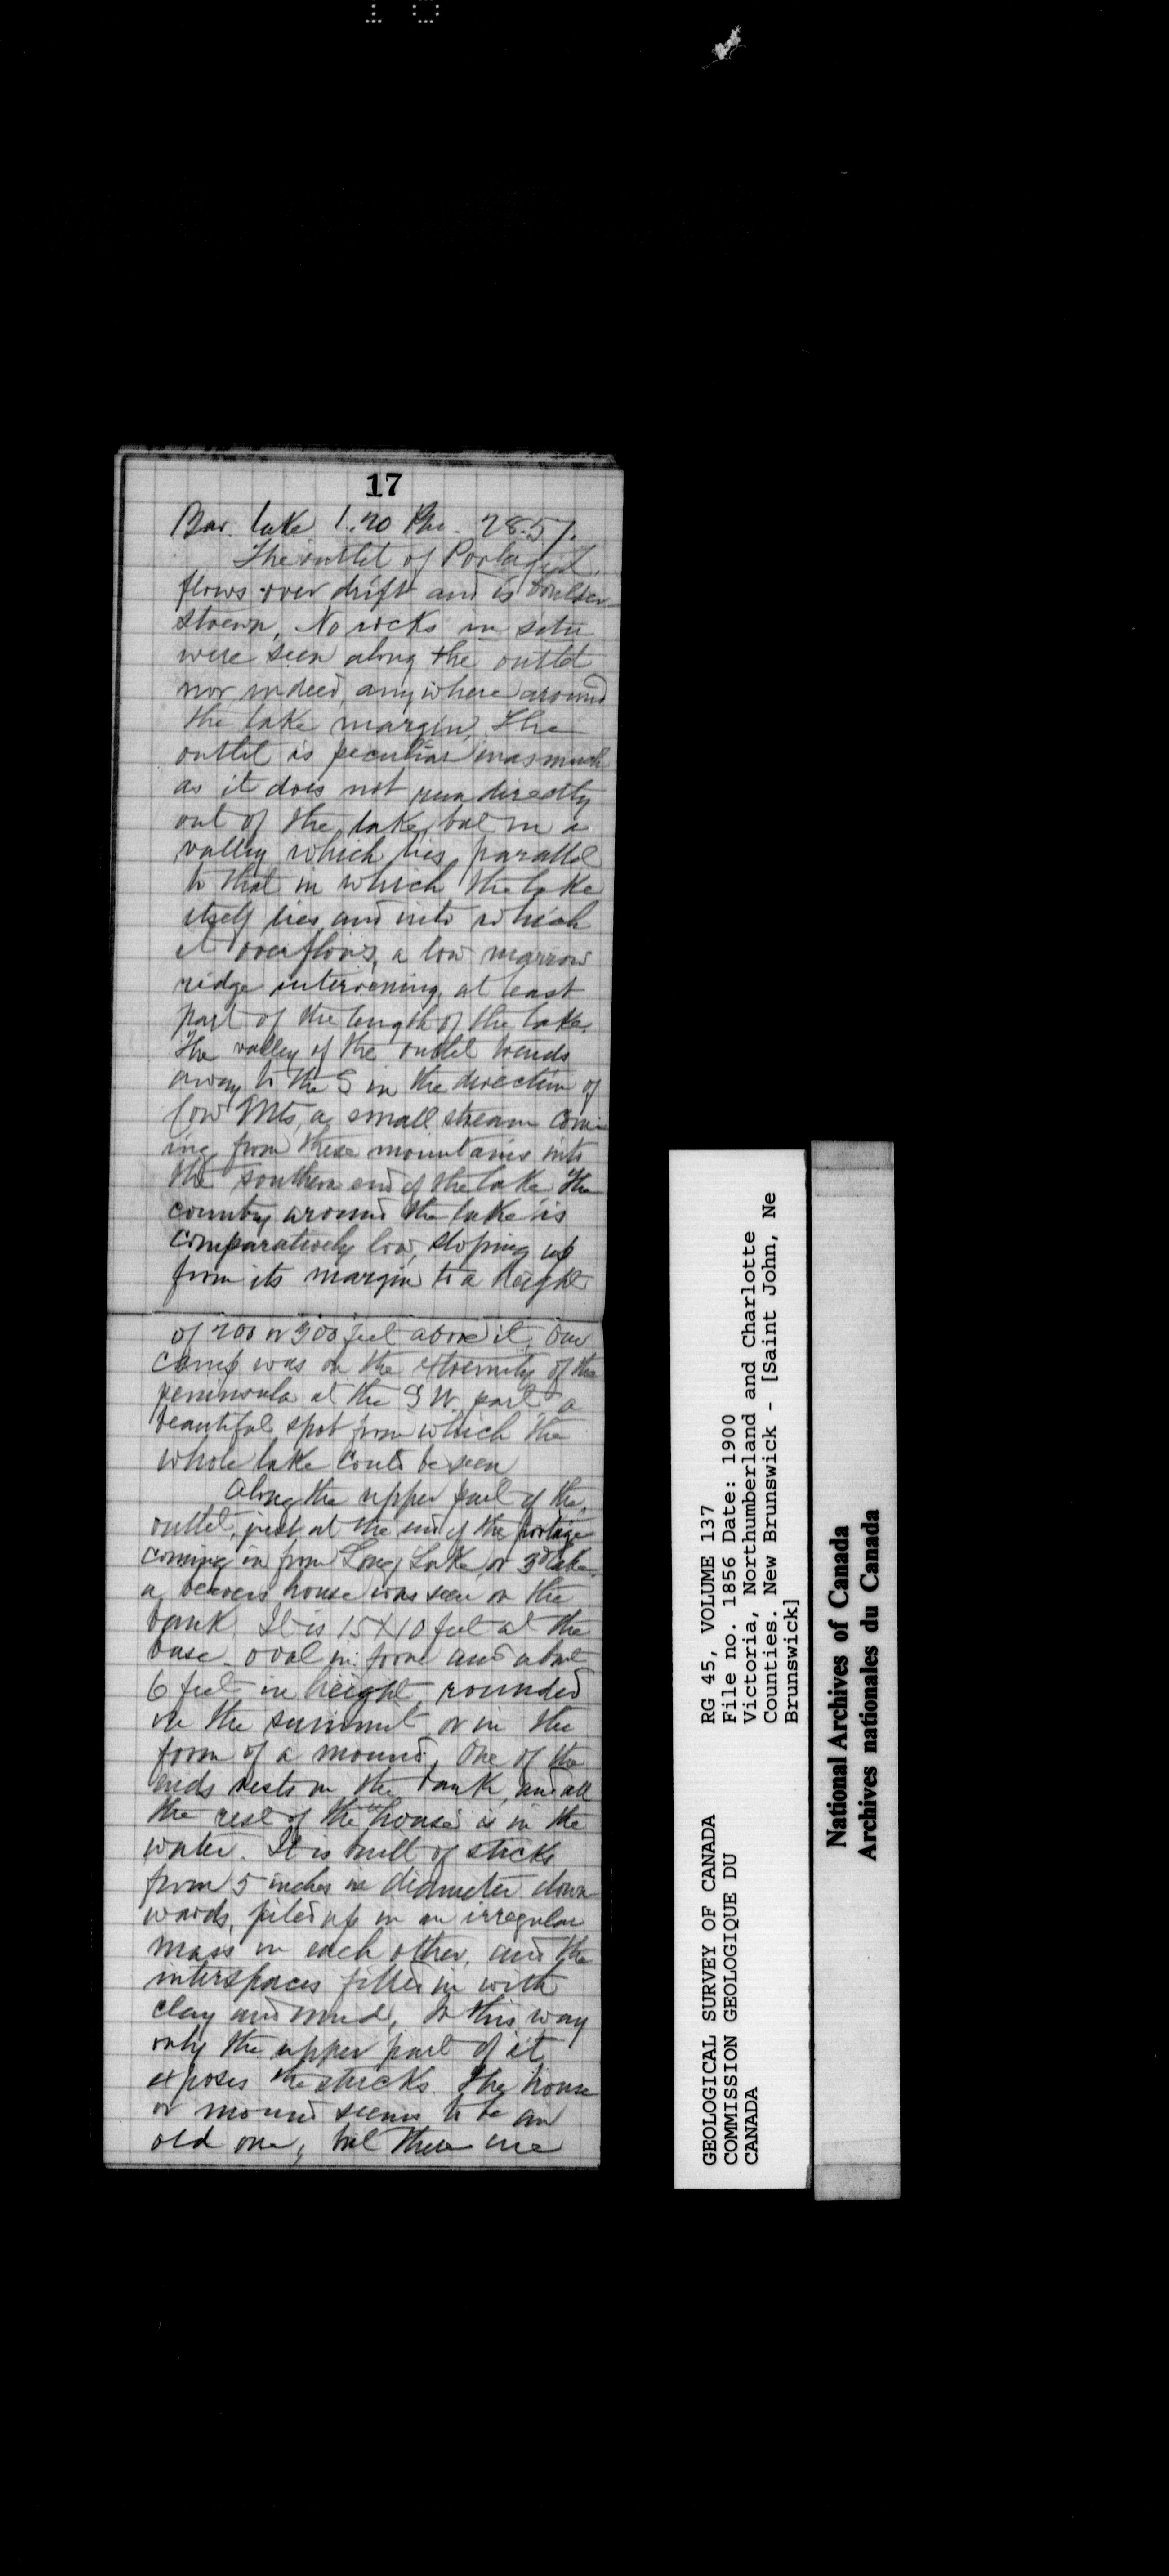 17
Bar. lake 1.20 Pm. 28.57.
The outlet of Portage L.
flows over drift and is boulder-
strewn. No rocks in situ
were seen along the outlet
nor, indeed, anywhere around
the lake margin. The
outlet is peculiar inasmuch
as it does not run directly
out of the lake, but in a
valley which lies parallel
to that in which the lake
itself lies and into which
it overflows, a low narrow
ridge intervening, at least
part of the length of the lake.
The valley of the outlet trends
away to the S in the direction of
low Mts, a small stream com-
ing from these mountains into
the southern end of the lake. The
country around the lake is
comparatively low, sloping up
from its margin to a height
of 200 or 300 feet above it. Our
camp was on the extremity of the
peninsula at the S W. part a
beautiful spot from which the
whole lake could be seen
Along the upper part of the
outlet, just at the end of the portage
coming in from Long Lake or 3d lake
a beavers house was seen on the
bank. It is 15 X 10 feet at the
base - oval in form and about
6 feet in height, rounded
on the summit, or in the
form of a mound. One of the
ends rests on the bank, and all
the rest of the "house" is in the
water. It is built of sticks
from 5 inches in diameter down-
wards, piled up in an irregular
mass on each other, and the
interspaces filled in with
clay and mud. In this way
only the upper part of it
exposes the sticks. The house
or mound seems to be an
old one, but there are
GEOLOGICAL SURVEY OF CANADA
COMMISSION GEOLOGIQUE DU
CANADA
RG 45, VOLUME 137
File no. 1856 Date: 1900
Victoria, Northumberland and Charlotte
Counties. New Brunswick - [Saint John, Ne
Brunswick]
National Archives of Canada
Archives nationales du Canada